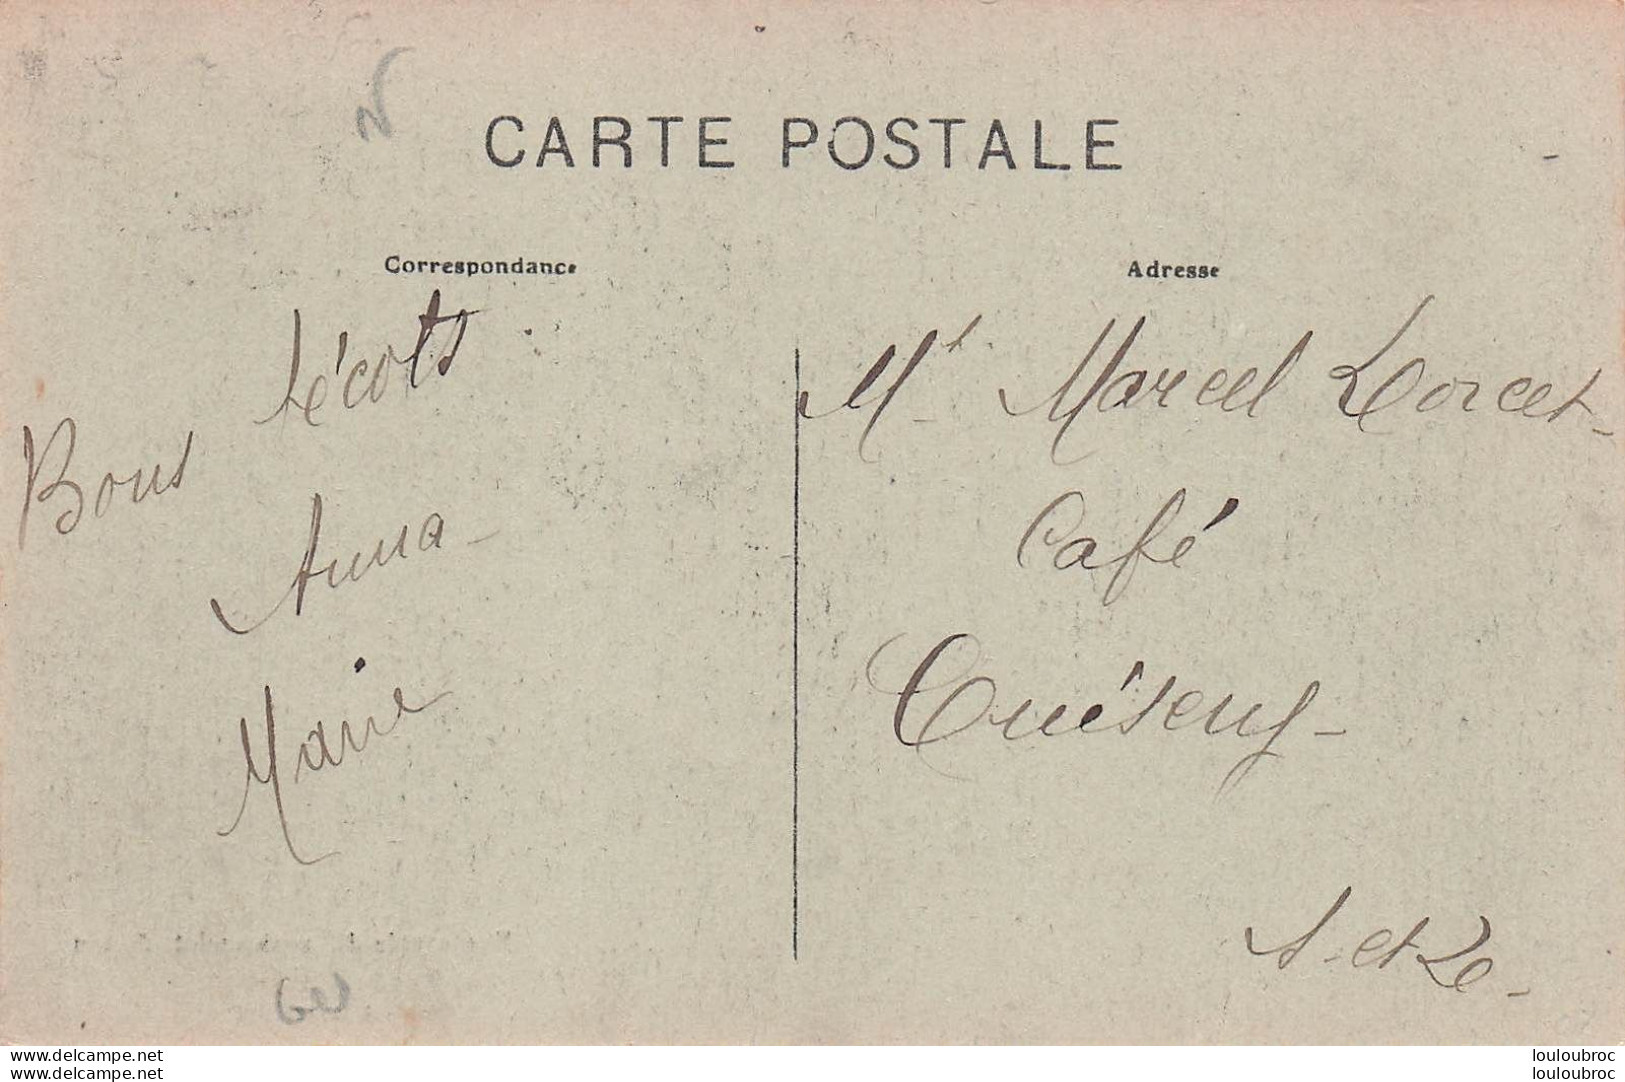 CARTE POSTALE
Correspondance
Bons bécots
Anna
Marie
Adresse
Mr Marcel Lorcet
Café
Cuiseng
S. et Le
www.delcampe.net
www.delcampe.net
louloubroc
louloubroc